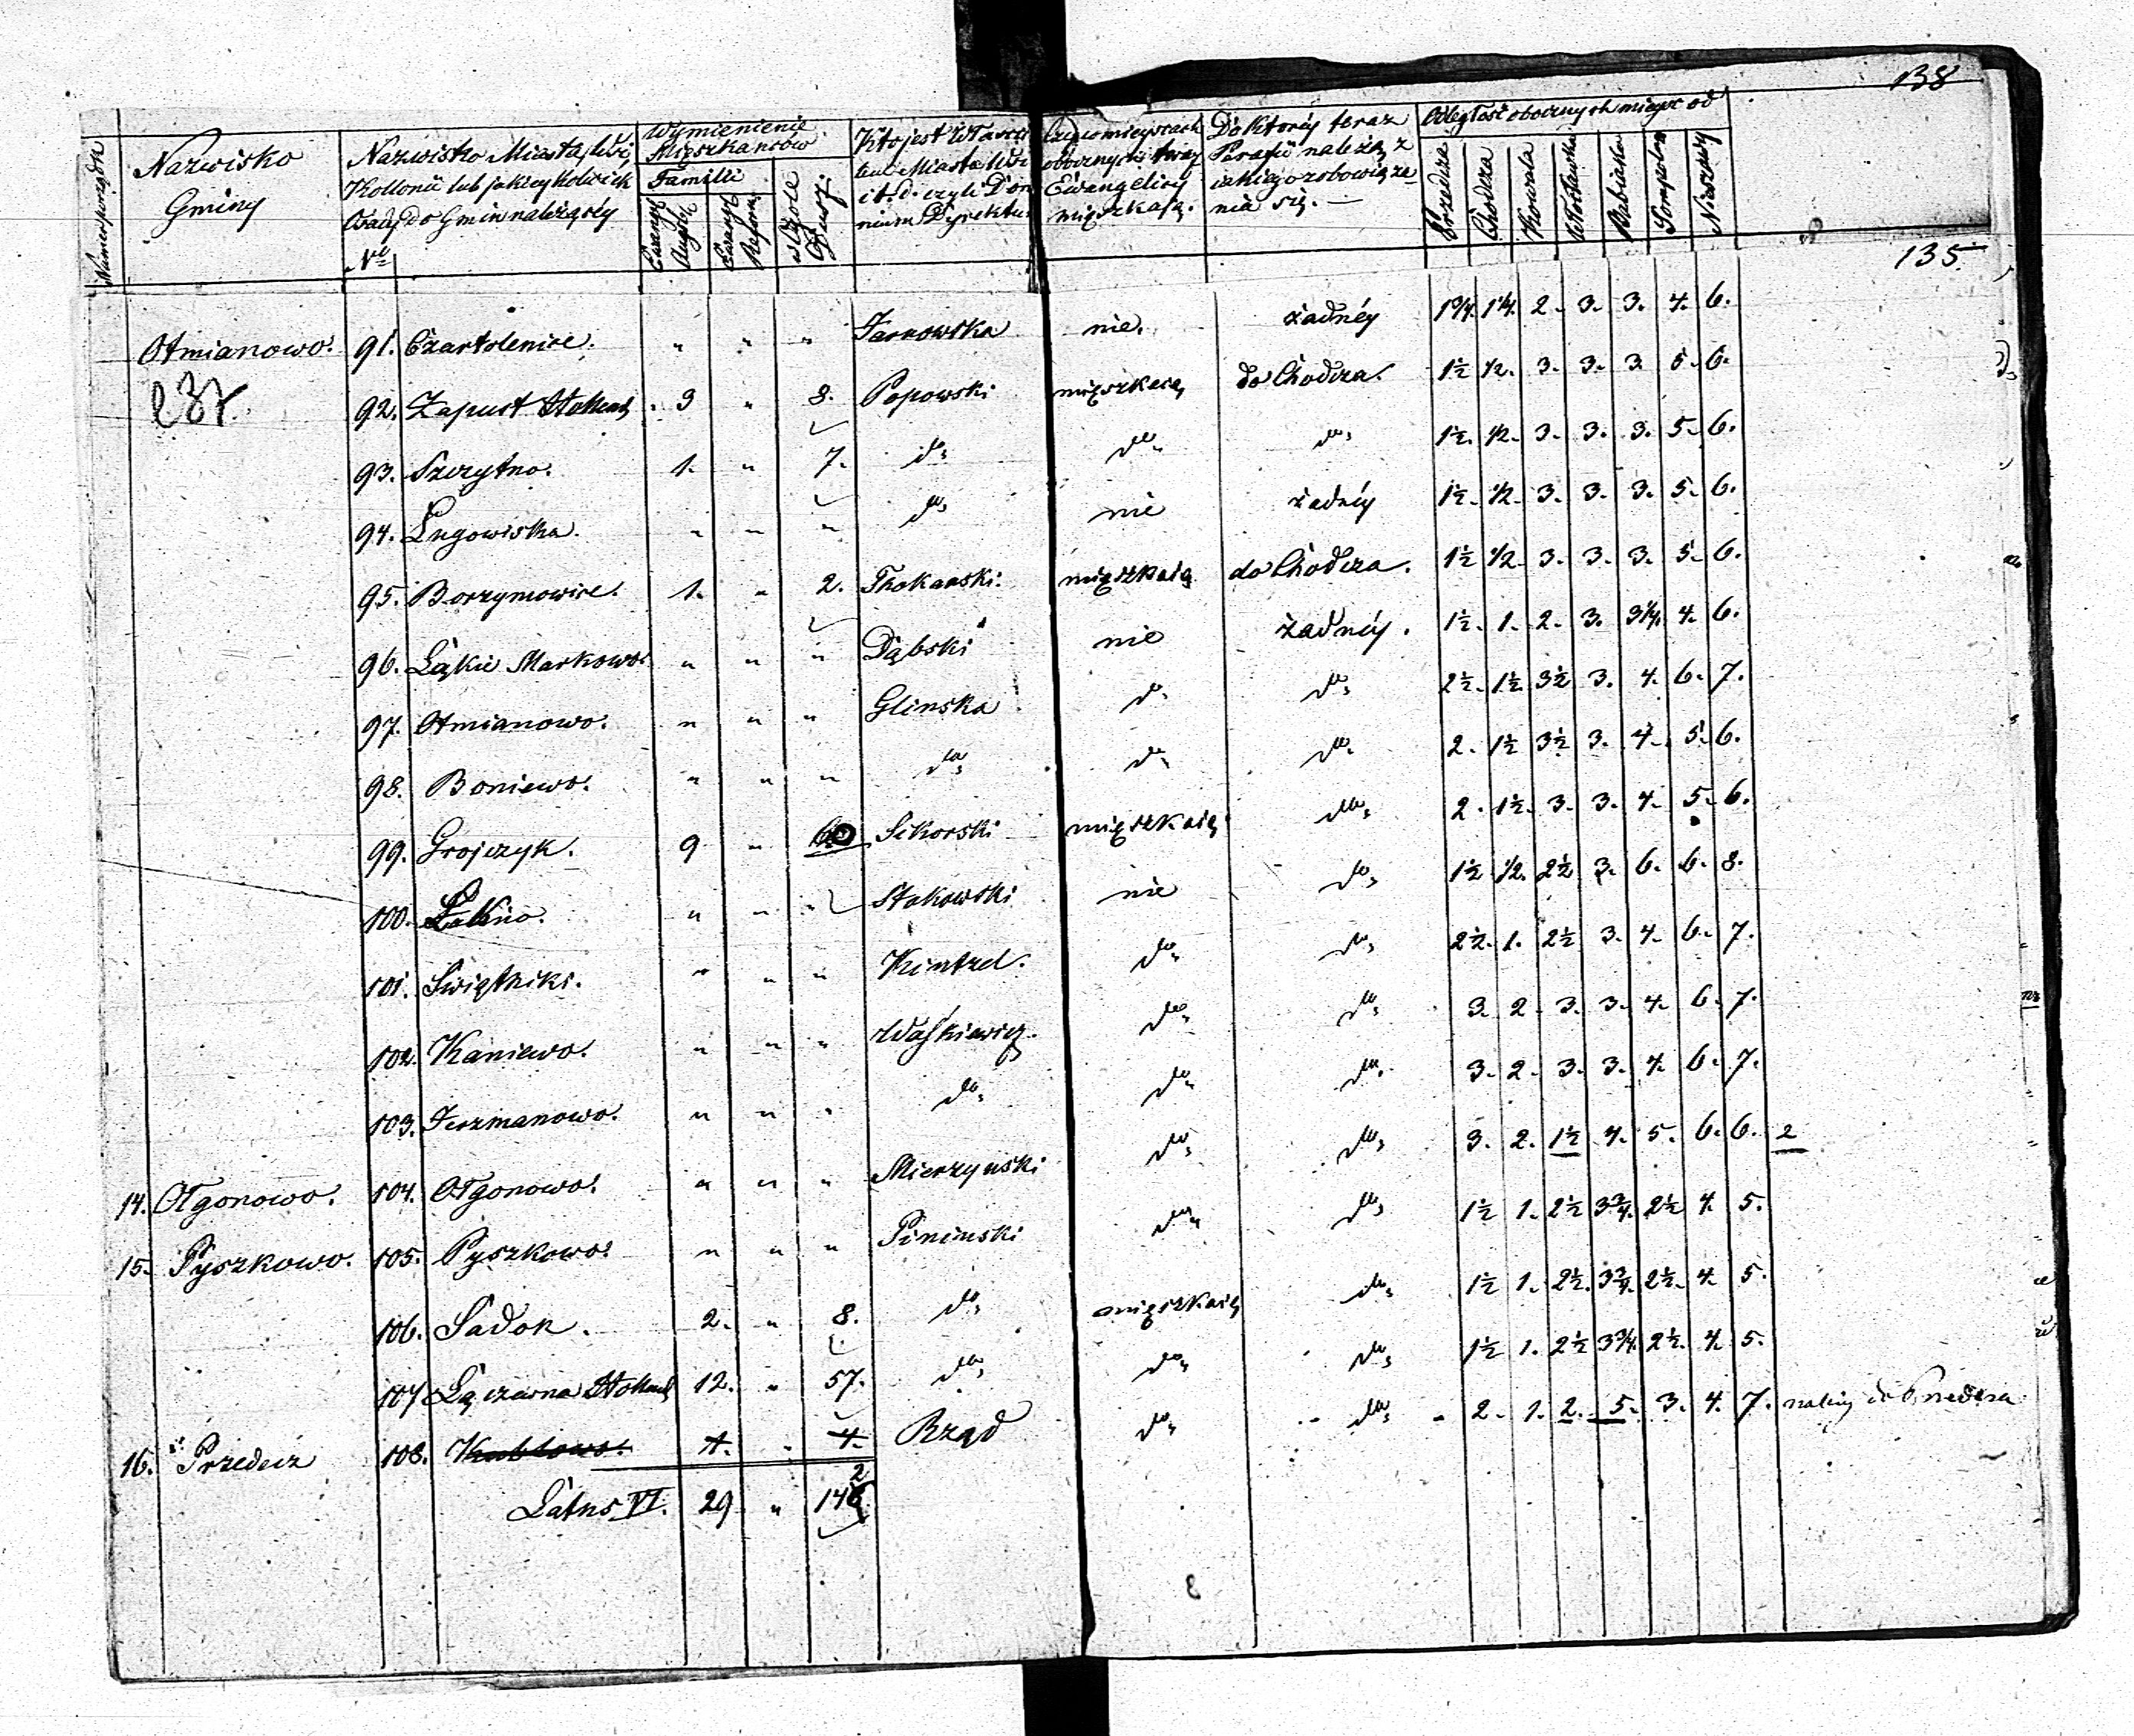 138
Numer porządk
Nazwisko Gminy
Nazwisko Miasta, Wsi, Kollonii lub jakieykolwiek Osady do Gmin należącey
Nro
Wymienienie Mieszkańców
Familii
Ewang: Augsb:
Ewang: Reform:
w Ogóle Dusz:
Kto jest Właści
lem Miasta Wsi
i t. d. czyli Dom
nium Dyrektu
Czy w mieyscach obocznych teraz Ewangelicy mięszkają.
Do którey teraz Parafii należą, z iakiego zobowiąza nia się. —
Odległość obocznych mieysc od
Przedcza
Chodcza
Kowala
Włocławka
Babiaka
Sompolna
Nieszawy
135.
Otmianowo. 91. Czartolenice. " " " Jarnowska nie. żadnéy 1 3/4. 1 1/4. 2. 3. 3. 4. 6.
92. Zapust Holland. 3 " 8. Popowski mięszkaią do Chodcza. 1 1/2 1/2. 3. 3. 3 5. 6.
93. Szczytno. 1. " 7. do do do 1 1/2. 1/2. 3. 3. 3. 5. 6.
94. Ługowiska. " " " do nie żadnéy 1 1/2. 1/2. 3. 3. 3. 5. 6.
95. Borzymowice. 1. " 2. Thokarski. mięszkaią do Chodcza. 1 1/2 1/2 3. 3. 3. 5. 6.
96. Łąkie Markowo. " " " Dąbski nie żadnéy. 1 1/2. 1. 2. 3. 3 1/4. 4. 6.
97. Otmianowo. " " " Glinska do do 2 1/2. 1 1/2. 3 1/2 3. 4. 6. 7.
98. Boniewo. " " " do do do 2. 1 1/2 3 1/2 3. 4. 5. 6.
99. Grojczyk. 9 " 60 Sikorski mięszkaią do 2. 1 1/2. 3. 3. 4. 5. 6.
100. " " " Stokowski nie do 1 1/2 1/2. 2 1/2 3. 6. 6. 8.
101. Swiątniki. " " " Kintzel. do do 2 1/2. 1. 2 1/2 3. 4. 6. 7.
102. Kaniewo. " " " Waśkiewicz. do do 3. 2. 3. 3. 4. 6. 7.
103. Jerzmanowo. " " " do do do 3. 2. 3. 3. 4. 6. 7.
14. Ołgonowo. 104. Ołgonowo. " " " Mierzynski do do 3. 2. 1 1/2 4. 5. 6. 6. 2
15. Pyszkowo. 105. Pyszkowo. " " " Pininski do do 1 1/2 1. 2 1/2 3 3/4. 2 1/2 4. 5.
106. Sadok. 2. " 8. do mięszkaią do 1 1/2 1. 2 1/2. 3 3/4. 2 1/2. 4. 5.
107 Łączewna Holland 12. " 57. do do do 1 1/2 1. 2 1/2 3 3/4. 2 1/2. 4. 5.
16. Przedecz 108. Kubłowo. 1. " 4. Rząd do do 2. 1. 2. 5. 3. 4. 7. należy do Przedcza
Latus VI. 29 " 142